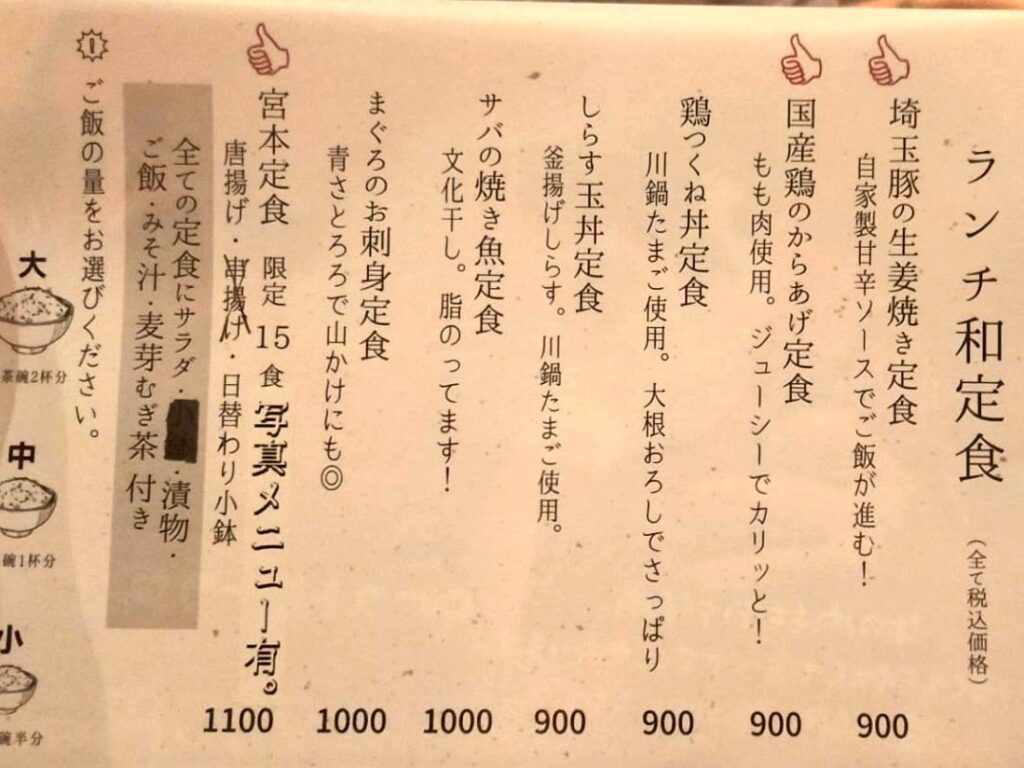 ランチ和定食
(全て税込価格)
埼玉豚の生姜焼き定食
自家製甘辛ソースでご飯が進む!
900
国産鶏のからあげ定食
もも肉使用。ジューシーでカリッと!
900
鶏つくね丼定食
川鍋たまご使用。大根おろしでさっぱり
900
しらす玉丼定食
釜揚げしらす。川鍋たまご使用。
900
サバの焼き魚定食
文化干し。脂のってます!
1000
まぐろのお刺身定食
青さとろろで山かけにも◎
1000
宮本定食 限定15食 写真メニュー有。
唐揚げ・串揚げ・日替わり小鉢
1100
全ての定食にサラダ・小鉢・漬物・
ご飯・みそ汁・麦芽むぎ茶 付き
! ご飯の量をお選びください。
大
茶碗2杯分
中
碗1杯分
小
碗半分